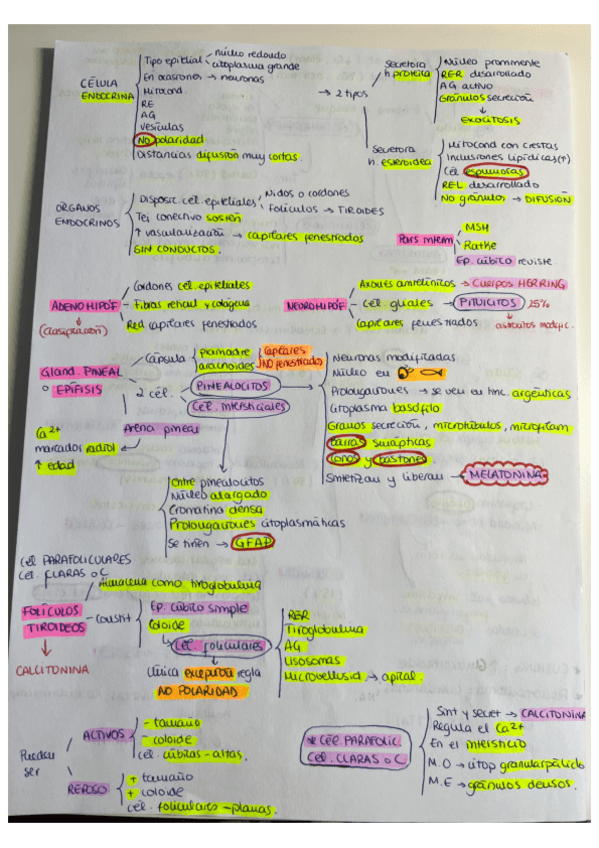 CÉLULA ENDOCRINA
Tipo epitelial
núcleo redondo
citoplasma grande
En ocasiones → neuronas
Mitocond
RE
AG
vesículas
No polaridad
Distancias difusión muy cortas.
→ 2 tipos
Secretora h. proteica
Núcleo prominente
RER desarrollado
AG activo
Gránulos secreción
EXOCITOSIS
Secretora h. esteroidea
Mitocond con crestas
Inclusiones lipídicas (↑)
Cél espumosas
REL desarrollado
No gránulos → DIFUSIÓN
ÓRGANOS ENDOCRINOS
Disposic. cél. epiteliales
Nidos o cordones
Folículos → TIROIDES
Tej conectivo sostén
↑ vascularización → capilares fenestrados
SIN CONDUCTOS.
Pars interm
MSH
Rathke
Ep. cúbico reviste
ADENOHIPÓF
(clasificación)
Cordones cél. epiteliales
Fibras reticul y colágeno
Red capilares fenestrados
NEUROHIPÓF
Axones amielínicos → Cuerpos HERRING
Cél gliales → PITUICITOS 25%
astrocitos modific.
Capilares fenestrados
Gland. PINEAL o EPÍFISIS
Cápsula
piamadre
aracnoides
Capilares NO fenestrados
2 cél.
PINEALOCITOS
Cél. intersticiales
Arena pineal
Ca²⁺
marcador radiol
↑ edad
Neuronas modificadas
Núcleo en
Prolongaciones → se ven en tinc. argénticas
Citoplasma basófilo
Granos secreción, microtúbulos, microfilam
Barras sinápticas
Conos y bastones.
Sintetizan y liberan → MELATONINA
Entre pinealocitos
Núcleo alargado
Cromatina densa
Prolongaciones citoplasmáticas
Se tiñen → GFAP
Cél PARAFOLICULARES
Cél. CLARAS o C
Almacena como tiroglobulina
FOLÍCULOS TIROIDEOS
CALCITONINA
→ constit
Ep. cúbico simple
Coloide
Cél. foliculares
Única excepción regla
NO POLARIDAD
RER
Tiroglobulina
AG
Lisosomas
Microvellosid → apical.
Pueden ser
ACTIVOS
- tamaño
- coloide
cél. cúbicas-altas.
REPOSO
+ tamaño
+ coloide
cél. foliculares-planas.
* Cél PARAFOLIC.
Cél. CLARAS o C
Sint y secret → CALCITONINA
Regula el Ca²⁺
En el intersticio
M.O → citop granular pálido
M.E → gránulos densos.